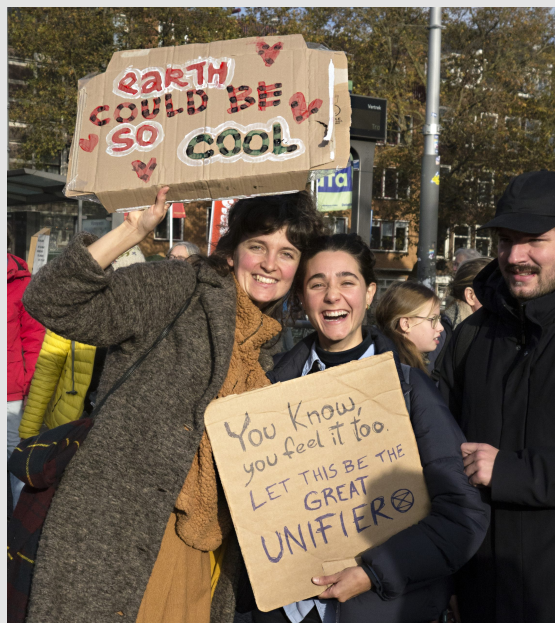 EARTH
COULD BE
SO COOL
Vertrek
You Know,
you feel it too.
LET THIS BE THE
GREAT
UNIFIER